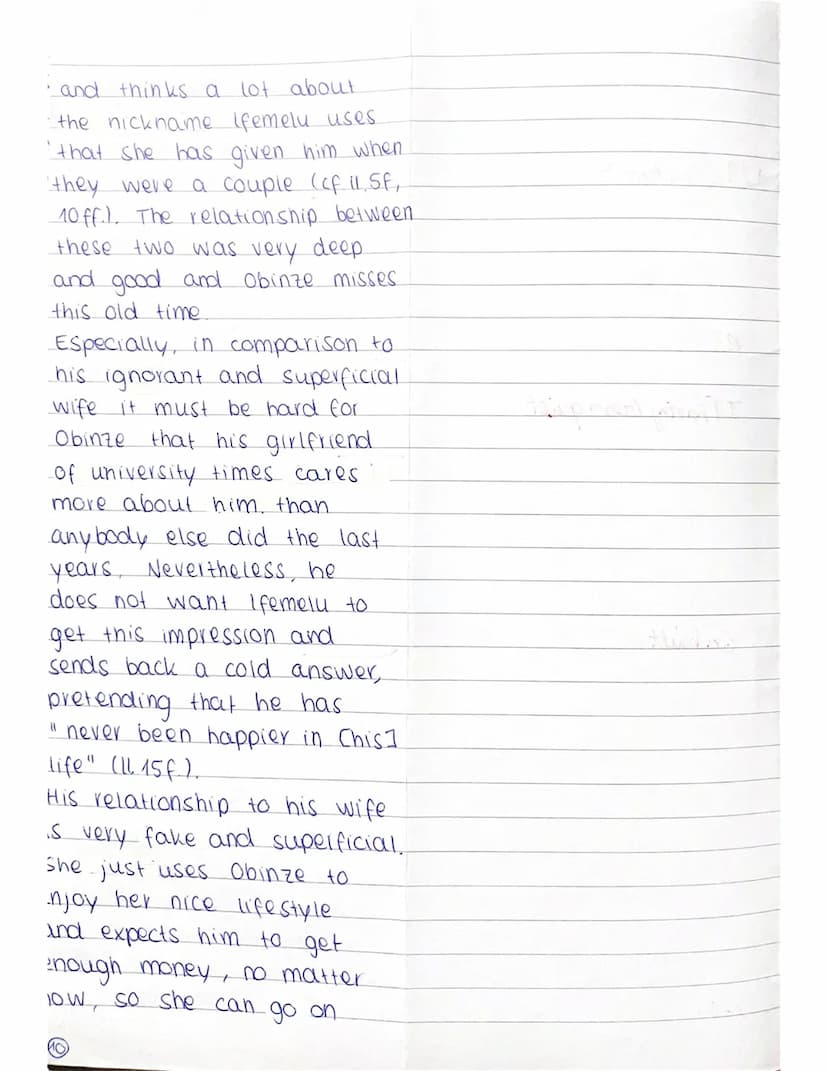 and thinks a lot about
the nickname Ifemelu uses
that she has given him when
they were a couple (cf. ll. 5f,
10ff.). The relationship between
these two was very deep
and good and Obinze misses
this old time.
Especially, in comparison to
his ignorant and superficial
wife it must be hard for
Obinze that his girlfriend
of university times cares
more about him. than
anybody else did the last
years. Nevertheless, he
does not want Ifemelu to
get this impression and
sends back a cold answer,
pretending that he has
"never been happier in [his]
life" (ll. 15f.).
His relationship to his wife
is very fake and superficial.
She just uses Obinze to
enjoy her nice lifestyle
and expects him to get
enough money, no matter
how, so she can go on
10